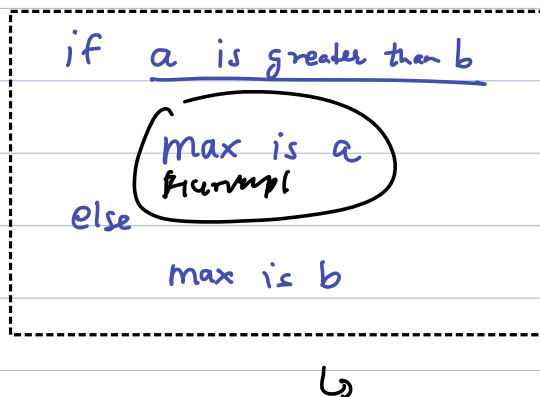 if a is greater than b
max is a
else
max is b